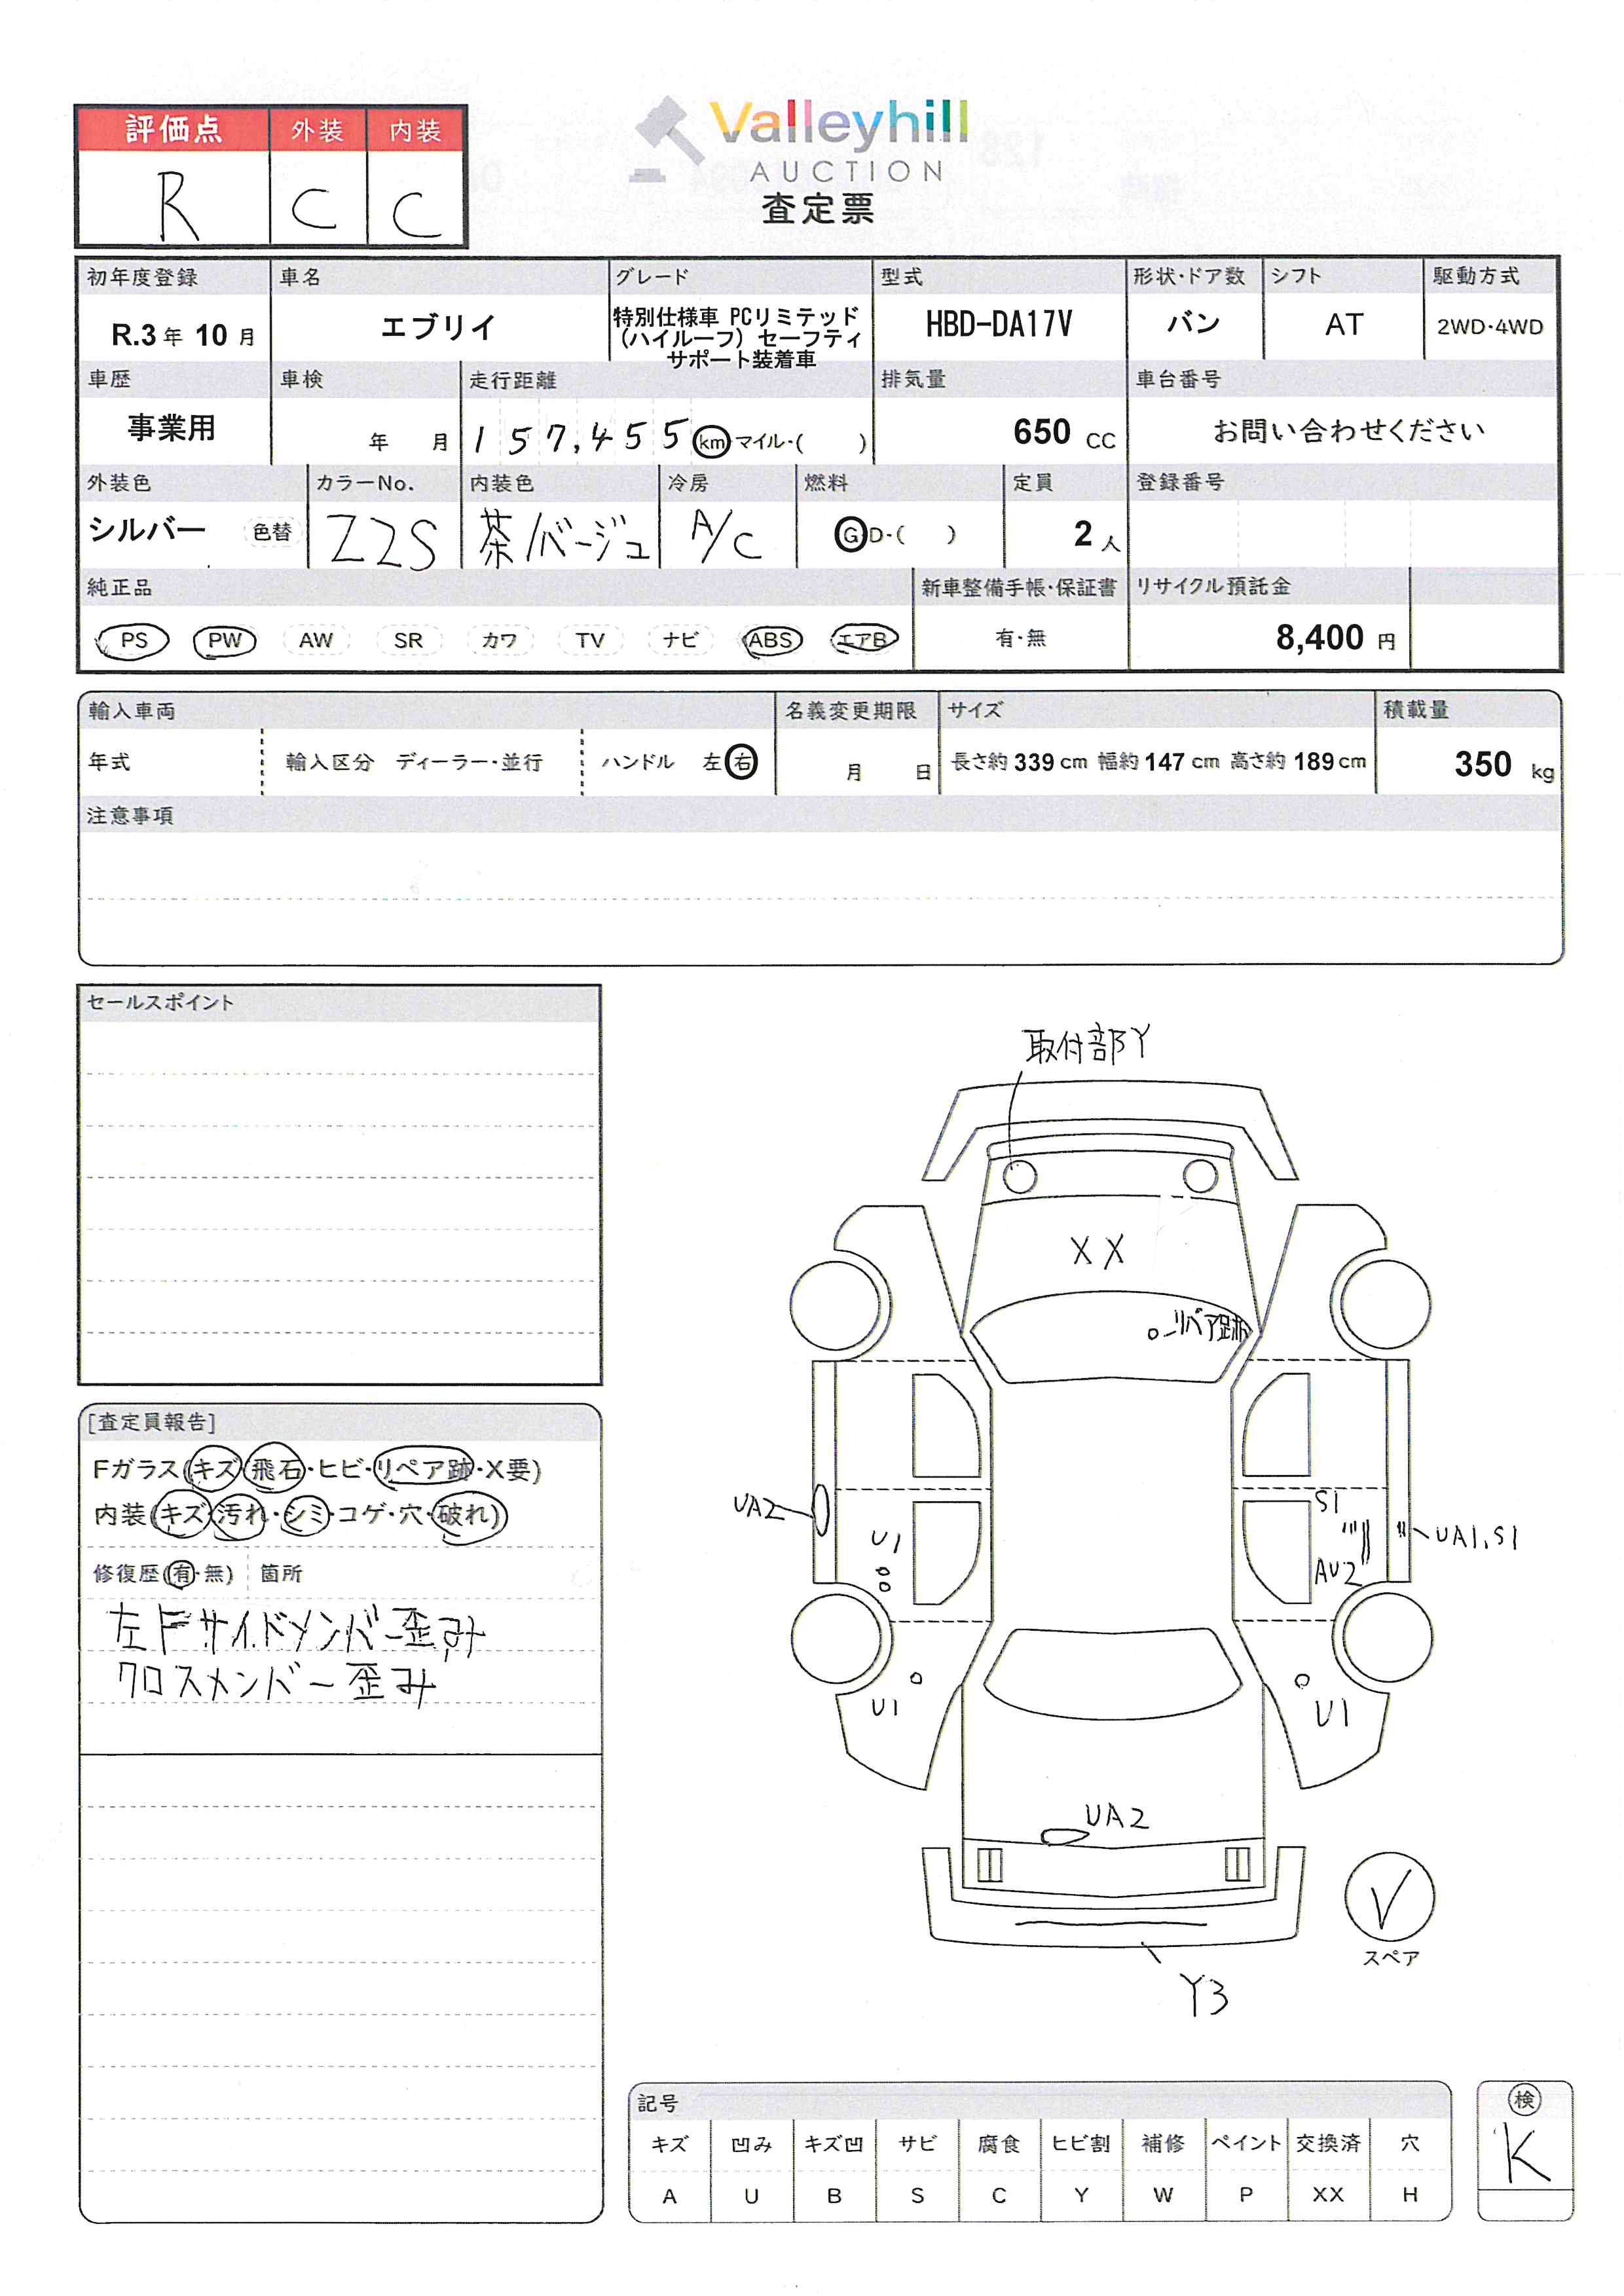 Valleyhill
AUCTION
査定票
評価点 外装 内装
R C C
初年度登録 車名 グレード 型式 形状・ドア数 シフト 駆動方式
R.3年 10月 エブリイ 特別仕様車 PCリミテッド（ハイルーフ）セーフティサポート装着車 HBD-DA17V バン AT 2WD・4WD
車歴 車検 走行距離 排気量 車台番号
事業用 年 月 157,455 km マイル・( ) 650 CC お問い合わせください
外装色 カラーNo. 内装色 冷房 燃料 定員 登録番号
シルバー 色替 Z2S 茶/ベージュ A/C G・D・( ) 2人
純正品 新車整備手帳・保証書 リサイクル預託金
PS PW AW SR カワ TV ナビ ABS エアB 有・無 8,400 円
輸入車両 名義変更期限 サイズ 積載量
年式 輸入区分 ディーラー・並行 ハンドル 左 右 月 日 長さ約 339 cm 幅約 147 cm 高さ約 189 cm 350 kg
注意事項
セールスポイント
取付部Y
XX
リペア跡
UA2
U1
S1
AU2
UA1.S1
U1
U1
UA2
Y3
スペア
[査定員報告]
Fガラス(キズ・飛石・ヒビ・リペア跡・X要)
内装(キズ・汚れ・シミ・コゲ・穴・破れ)
修復歴(有・無) 箇所
左Fサイドメンバー歪み
クロスメンバー歪み
記号
キズ 凹み キズ凹 サビ 腐食 ヒビ割 補修 ペイント 交換済 穴
A U B S C Y W P XX H
検
K